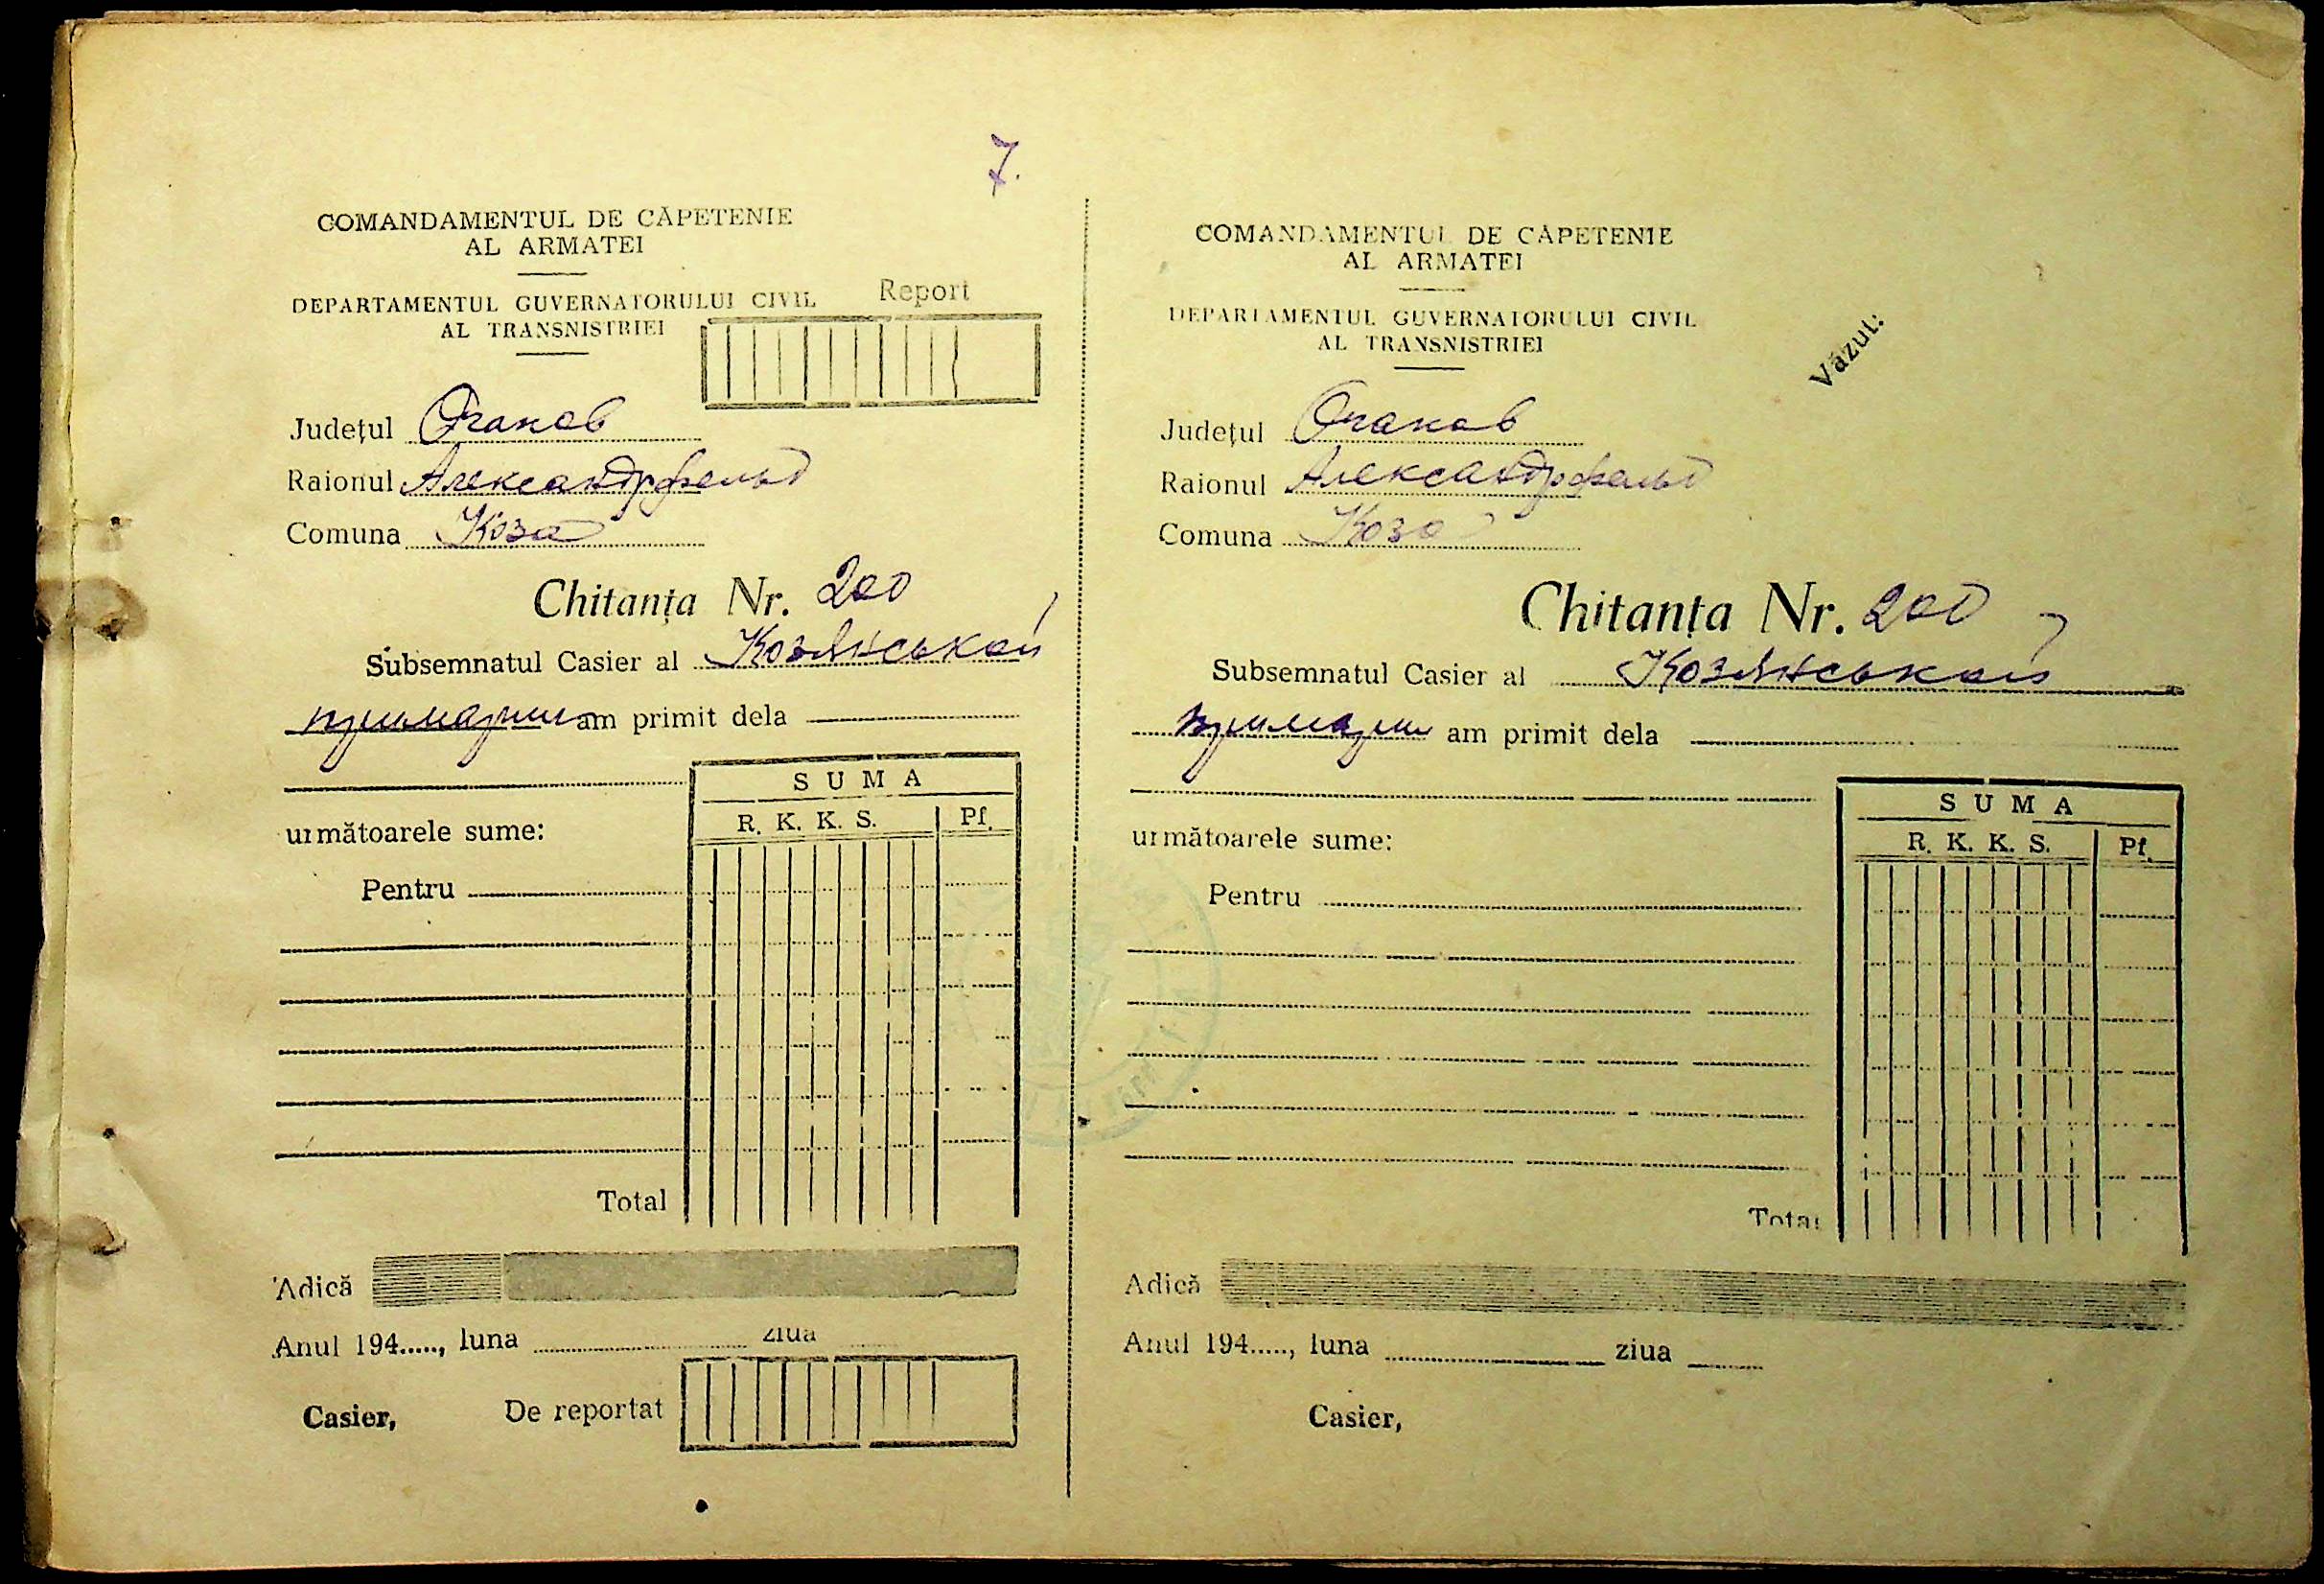 7.
COMANDAMENTUL DE CĂPETENIE
AL ARMATEI
DEPARTAMENTUL GUVERNATORULUI CIVIL
AL TRANSNISTRIEI
Report
Județul Очаков
Raionul Александрфельд
Comuna Коза
Chitanța Nr. 200
Subsemnatul Casier al Козянськой
примарии am primit dela
SUMA
R. K. K. S. Pf.
următoarele sume:
Pentru
Total
Adică
Anul 194....., luna ziua
Casier, De reportat
COMANDAMENTUL DE CĂPETENIE
AL ARMATEI
DEPARTAMENTUL GUVERNATORULUI CIVIL
AL TRANSNISTRIEI
Văzut:
Județul Очаков
Raionul Александрфельд
Comuna Коза
Chitanța Nr. 200
Subsemnatul Casier al Козянськой
примарии am primit dela
SUMA
R. K. K. S. Pf.
următoarele sume:
Pentru
Total
Adică
Anul 194....., luna ziua
Casier,